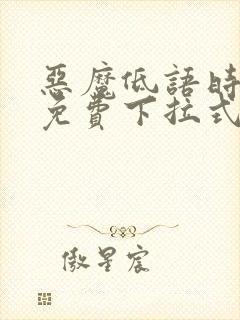 惡魔低語時
免費下拉式
傲星宸